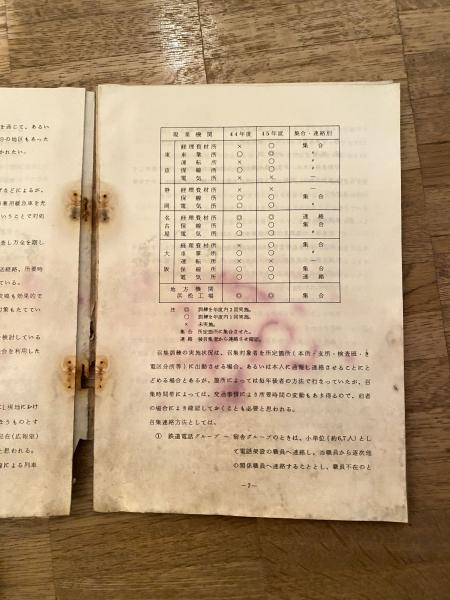 を通じて、あるい
分の地区もあった
かれたい。
げるなどによるが、
務兼用緩急車を充
いうことで対処
査し万全を期し
送経路、所要時
ている。
実場も効果的で
対策もたててい
検討している
会を利用した
に現地にかけ
ようものとす
在（広報室）
と思われる。
線による列車
現業機関 44年度 45年度 集合・連絡別
東京
経理資材所 × ○ 集合
車掌所 ○ ◎ 〃
運転所 × ○ 〃
保線所 ○ ○ 〃
電気所 × × ―
静岡
経理資材所 × × ―
保線所 ○ ○ 集合
電気所 ○ ○ 〃
名古屋
経理資材所 ◎ ◎ 連絡
保線所 ○ ○ 集合
電気所 ○ ○ 〃
大阪
経理資材所 × ○ 集合
車掌所 ○ ○ 〃
運転所 × × ―
保線所 ○ ○ 集合
電気所 ○ ○ 連絡
地方機関
浜松工場 ◎ ◎ 集合
注 ◎ 訓練を年度内2回実施。
○ 訓練を年度内1回実施。
× 未実施。
集合 所定箇所に集合させた。
連絡 被召集者から連絡させ確認。
召集訓練の実施状況は、召集対象者を所定箇所（本所・支所・検査班・き
電区分所等）に出動させる場合、あるいは本人に通報し連絡させることにと
どめる場合とあるが、箇所によっては毎年後者の方法で行なっていたが、召
集時間帯によっては、交通事情により所要時間の変動もあり得るので、前者
の場合により確認しておくことも必要と思われる。
召集連絡方法としては、
① 鉄道電話グループ ー 宿舎グループのときは、小単位（約6.7人）として
電話架設の職員へ連絡し、当職員から逐次他
の関係職員へ連絡することとし、職員不在のと
―7―